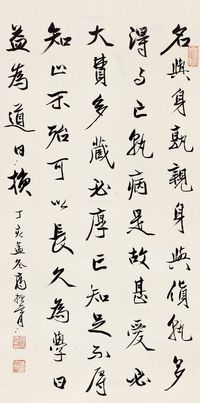 名與身孰親身與貨孰多
得与亡孰病是故甚愛必
大費多藏必厚亡知足不辱
知止不殆可以長久為學日
益為道日損
丁亥孟冬